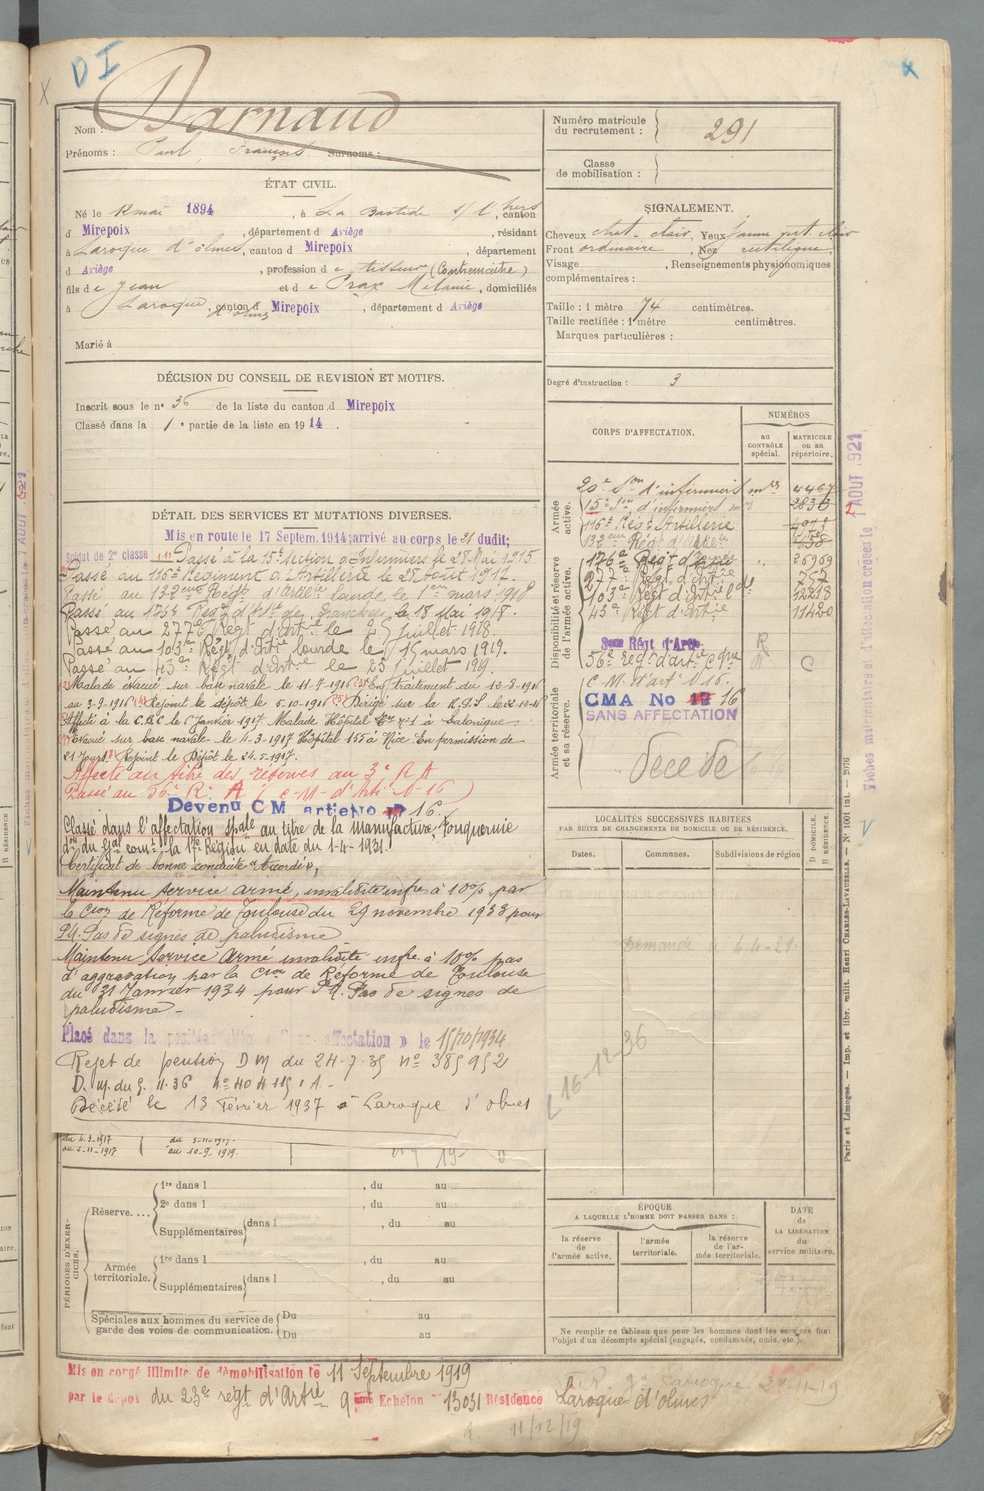 D I
Nom : Darnaud
Prénoms : Paul, François Surnoms :
Numéro matricule du recrutement : 291
Classe de mobilisation :
ÉTAT CIVIL.
Né le 12 mai 1894, à La Bastide s/ l'hers, canton
d Mirepoix, département d Ariège, résidant
à Laroque d'olmes, canton d Mirepoix, département
d Ariège, profession de tisseur (Contremaitre)
fils de Jean et de Prax Mélanie, domiciliés
à Laroque d'olmes, canton d Mirepoix, département d Ariège
Marié à
SIGNALEMENT.
Cheveux chat. clair, Yeux jaune vert clair
Front ordinaire, Nez rectiligne
Visage , Renseignements physionomiques
complémentaires :
Taille : 1 mètre 74 centimètres.
Taille rectifiée : 1 mètre centimètres.
Marques particulières :
Degré d'instruction : 3
DÉCISION DU CONSEIL DE REVISION ET MOTIFS.
Inscrit sous le n° 36 de la liste du canton d Mirepoix
Classé dans la 1e partie de la liste en 1914.
DÉTAIL DES SERVICES ET MUTATIONS DIVERSES.
Mis en route le 17 Septem. 1914; arrivé au corps le 21 dudit;
Soldat de 2e classe Passé à la 15e section d'Infirmiers le 28 Mai 1915
Passé au 116e Régiment d'Artillerie le 25 Août 1917.
Passé au 132eme Régt d'Artie Lourde le 1er mars 1918
Passé au 176e Régt d'Art de Tranchées le 18 Mai 1918.
Passé au 277e Régt d'Artie le 25 juillet 1918.
Passé au 103e Régt d'Artie Lourde le 15 mars 1919.
Passé au 43e Régt d'Artie le 25 juillet 1919.
Malade évacué sur base navale le 11-7-1916 En traitement du 12-8-1916
au 3-9-1916 Rejoint le dépôt le 5-10-1916 Dirigé sur la R.G.S. le 22-10-16
Affecté à la C.B.C le 6 Janvier 1917 Malade Hôpital n° 1 à Salonique
Evacué sur base navale le 4-3-1917 Hôpital 155 à Nice En permission de
21 jours. Rejoint le Dépôt le 24-5-1917.
Affecté au titre des réserves au 3e R A
Passé au 56e R. A (C-M-d'Arti N-16)
Devenu C M artie No 16.
Classé dans l'affectation spale au titre de la manufacture Fonquernie
don du Gal comt la 17e Région en date du 1-4-1931
Certificat de bonne conduite "Accordé",
Maintenu Service armé, invalidité infre à 10% par
la Cion de Réforme de Toulouse du 29 novembre 1933 pour
P.U. Pas de signes de paludisme
Maintenu Service Armé invalidité infre à 10% pas
d'aggravation par la Cion de Réforme de Toulouse
du 31 Janvier 1934 pour P.U. Pas de signes de
paludisme.-
Placé dans la position dite « Sans affectation » le 15/10/1934
Rejet de pension D M du 24-7-35 n° 385952
D. M. du 5.11.36
Décédé le 13 Février 1937 à Laroque d'olmes
du 4-3-1917
au 2-11-1917
du 3-11-1917.
au 10-9-1919.
CORPS D'AFFECTATION.
NUMÉROS
AU CONTRÔLE spécial.
MATRICULE OU AU répertoire.
Armée active.
20e Son d'infirmiers mres 4467
15e Son d'infirmiers mres 2836
116e Régt Artillerie
132eme Régt d'Artie
Disponibilité et réserve de l'armée active.
176e Régt d'Artie 26969
277e Régt d'Artie 757
103e Régt d'Artie lde 12218
43e Régt d'Artie 11420
3eme Régt d'Artie. R
56e regt d'artie C
Armée territoriale et sa réserve.
C M d'art N 16.
CMA No 16
SANS AFFECTATION
Décédé
LOCALITÉS SUCCESSIVES HABITÉES
PAR SUITE DE CHANGEMENTS DE DOMICILE OU DE RÉSIDENCE.
Dates. Communes. Subdivisions de région
D DOMICILE. R RÉSIDENCE.
Demande 4-4-21
16-12-36
PÉRIODES D'EXERCICES.
Réserve....
1re dans l , du au
2e dans l , du au
Supplémentaires dans l , du au
Armée territoriale.
1re dans l , du au
Supplémentaires dans l , du au
Spéciales aux hommes du service de garde des voies de communication. Du au
Du au
ÉPOQUE
A LAQUELLE L'HOMME DOIT PASSER DANS :
la réserve de l'armée active.
l'armée territoriale.
la réserve de l'armée territoriale.
DATE de LA LIBÉRATION du service militaire.
Ne remplir ce tableau que pour les hommes dont les services font
l'objet d'un décompte spécial (engagés, condamnés, omis, etc.).
Mis en congé illimité de démobilisation le 11 Septembre 1919
par le dépôt du 23e régt d'Artie 9eme Echelon n° 13031 Résidence Laroque d'olmes
11/12/19
Fiches matriculaire et d'affectation créées le 1 AOUT 1921
Paris et Limoges. — Imp. et libr. milit. Henri CHARLES-LAVAUZELLE. — N° 1001 int. — 2076